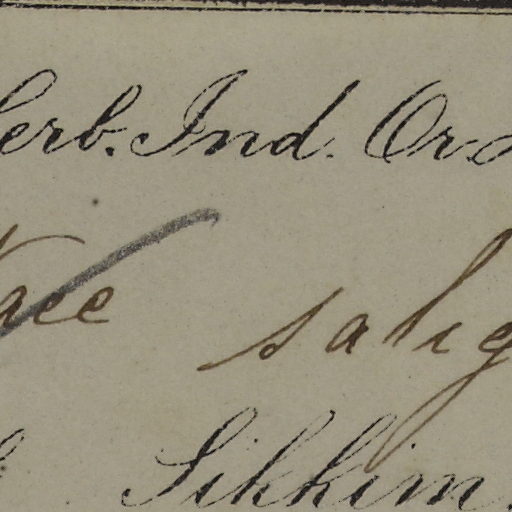 erb. Ind. Or.
salig
Sikkim.